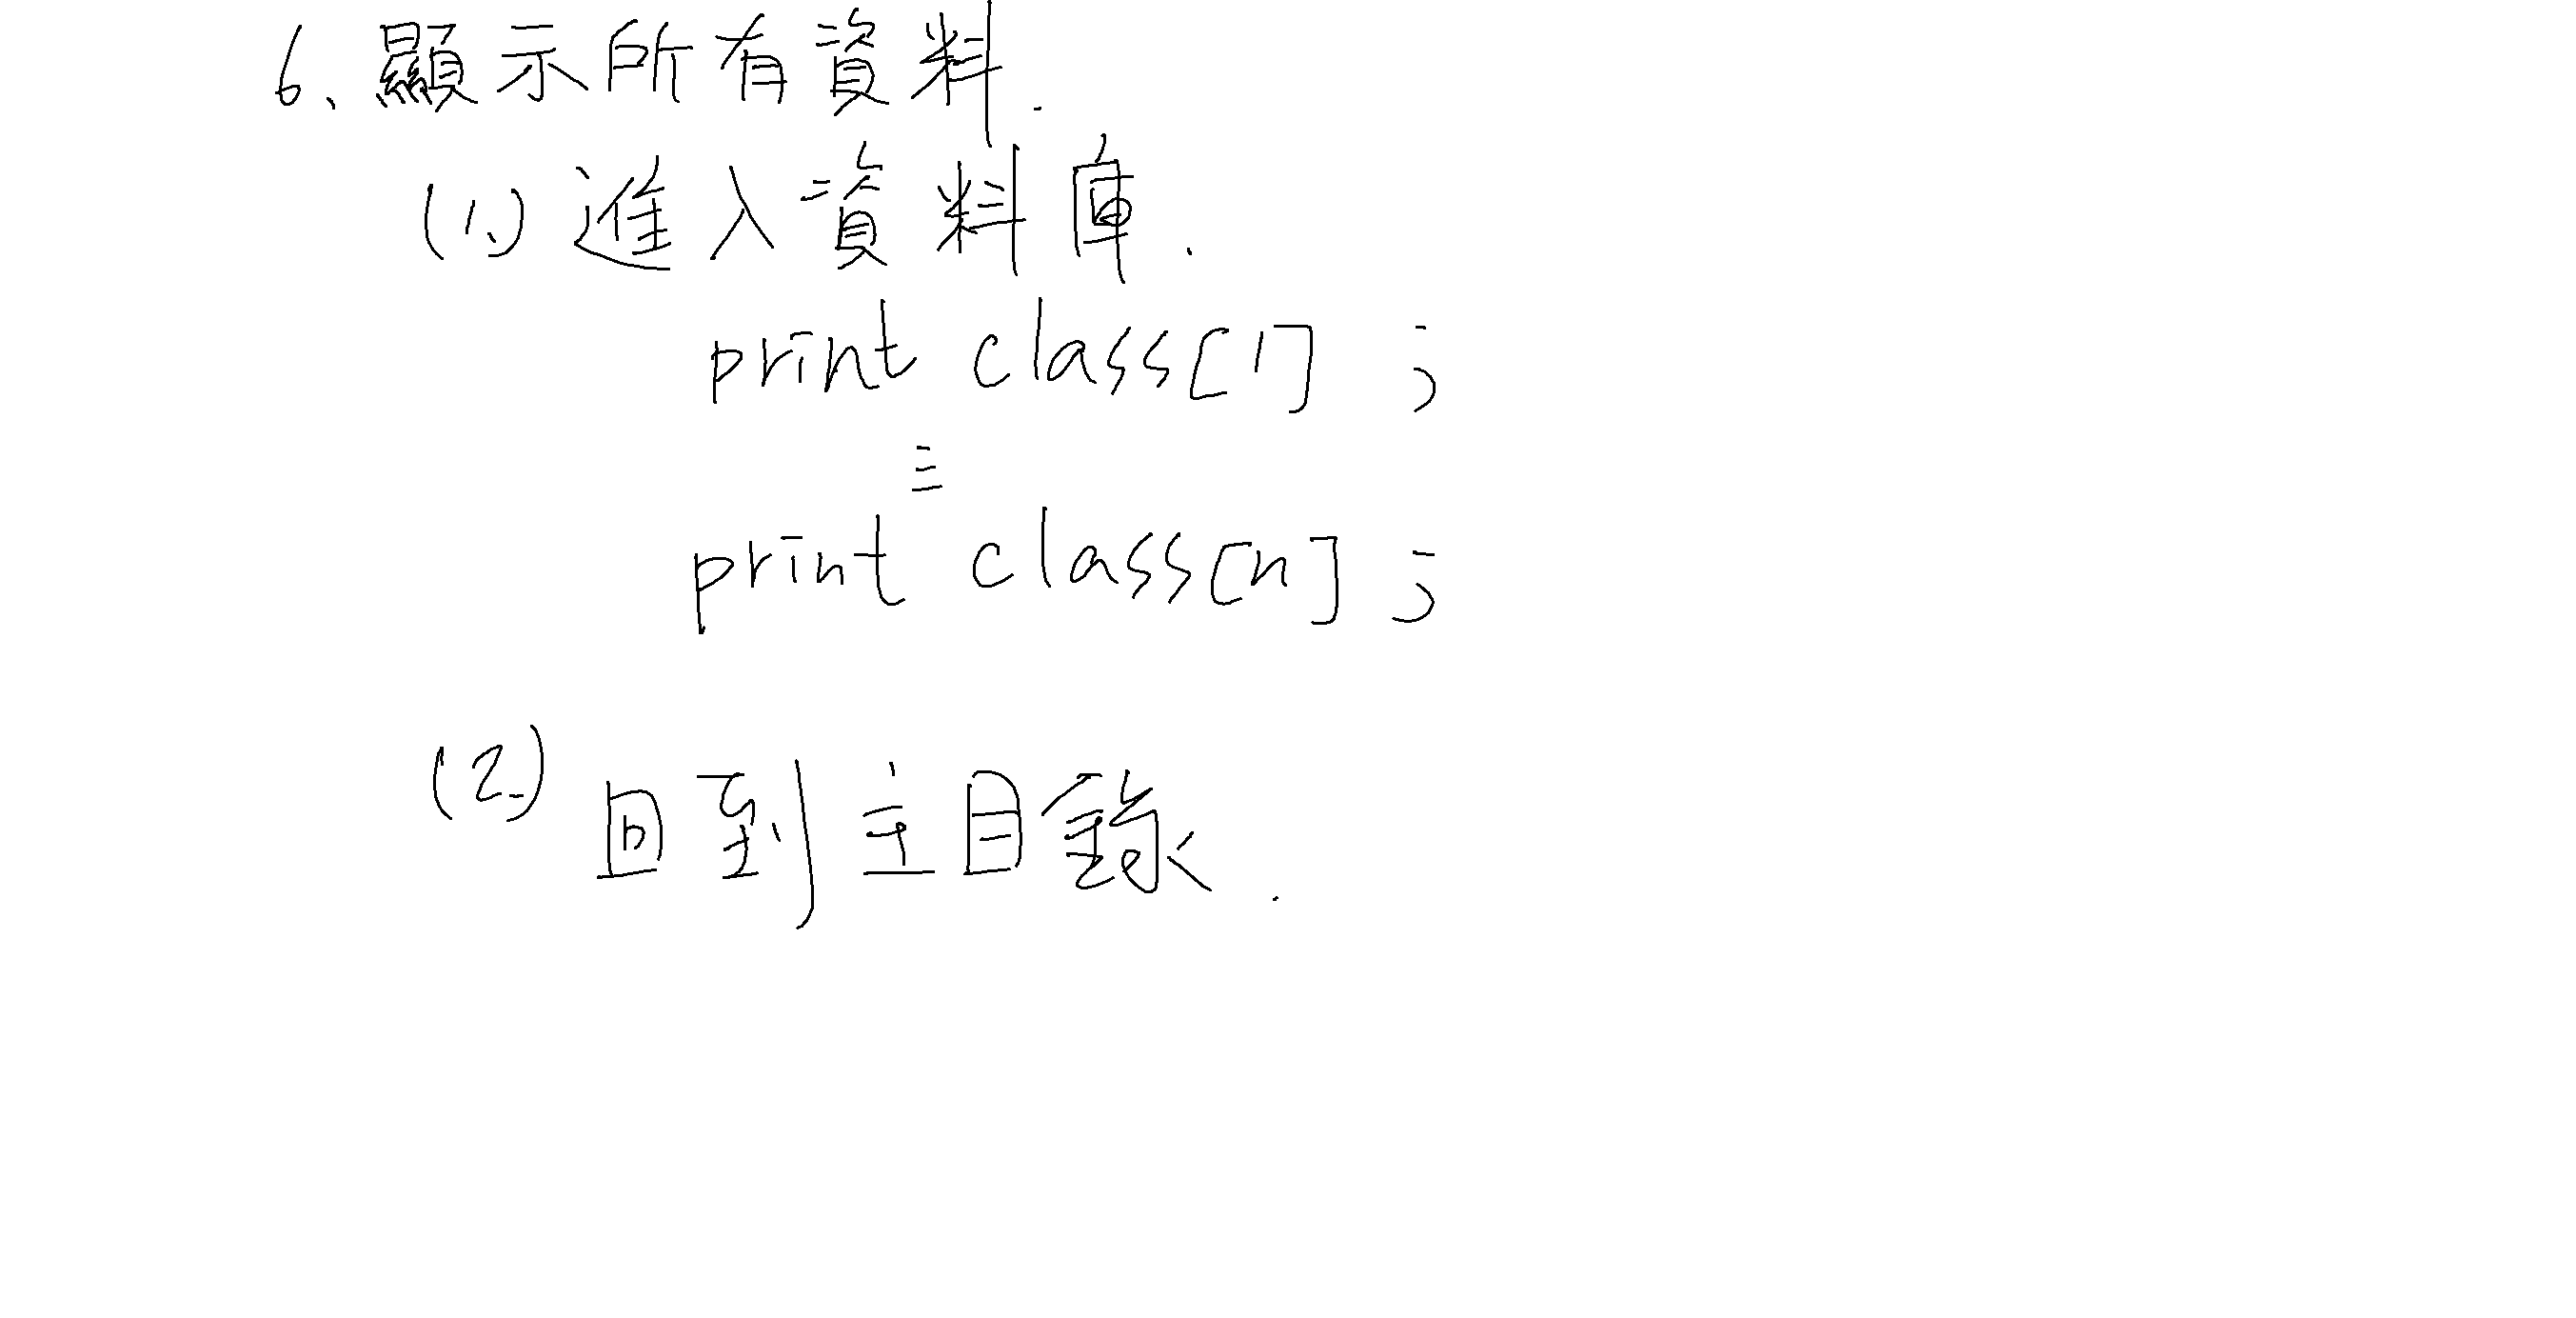 6、顯示所有資料.
(1.) 進入資料庫.
print class[1] ;
⋮
print class[n] ;
(2.) 回到主目錄.